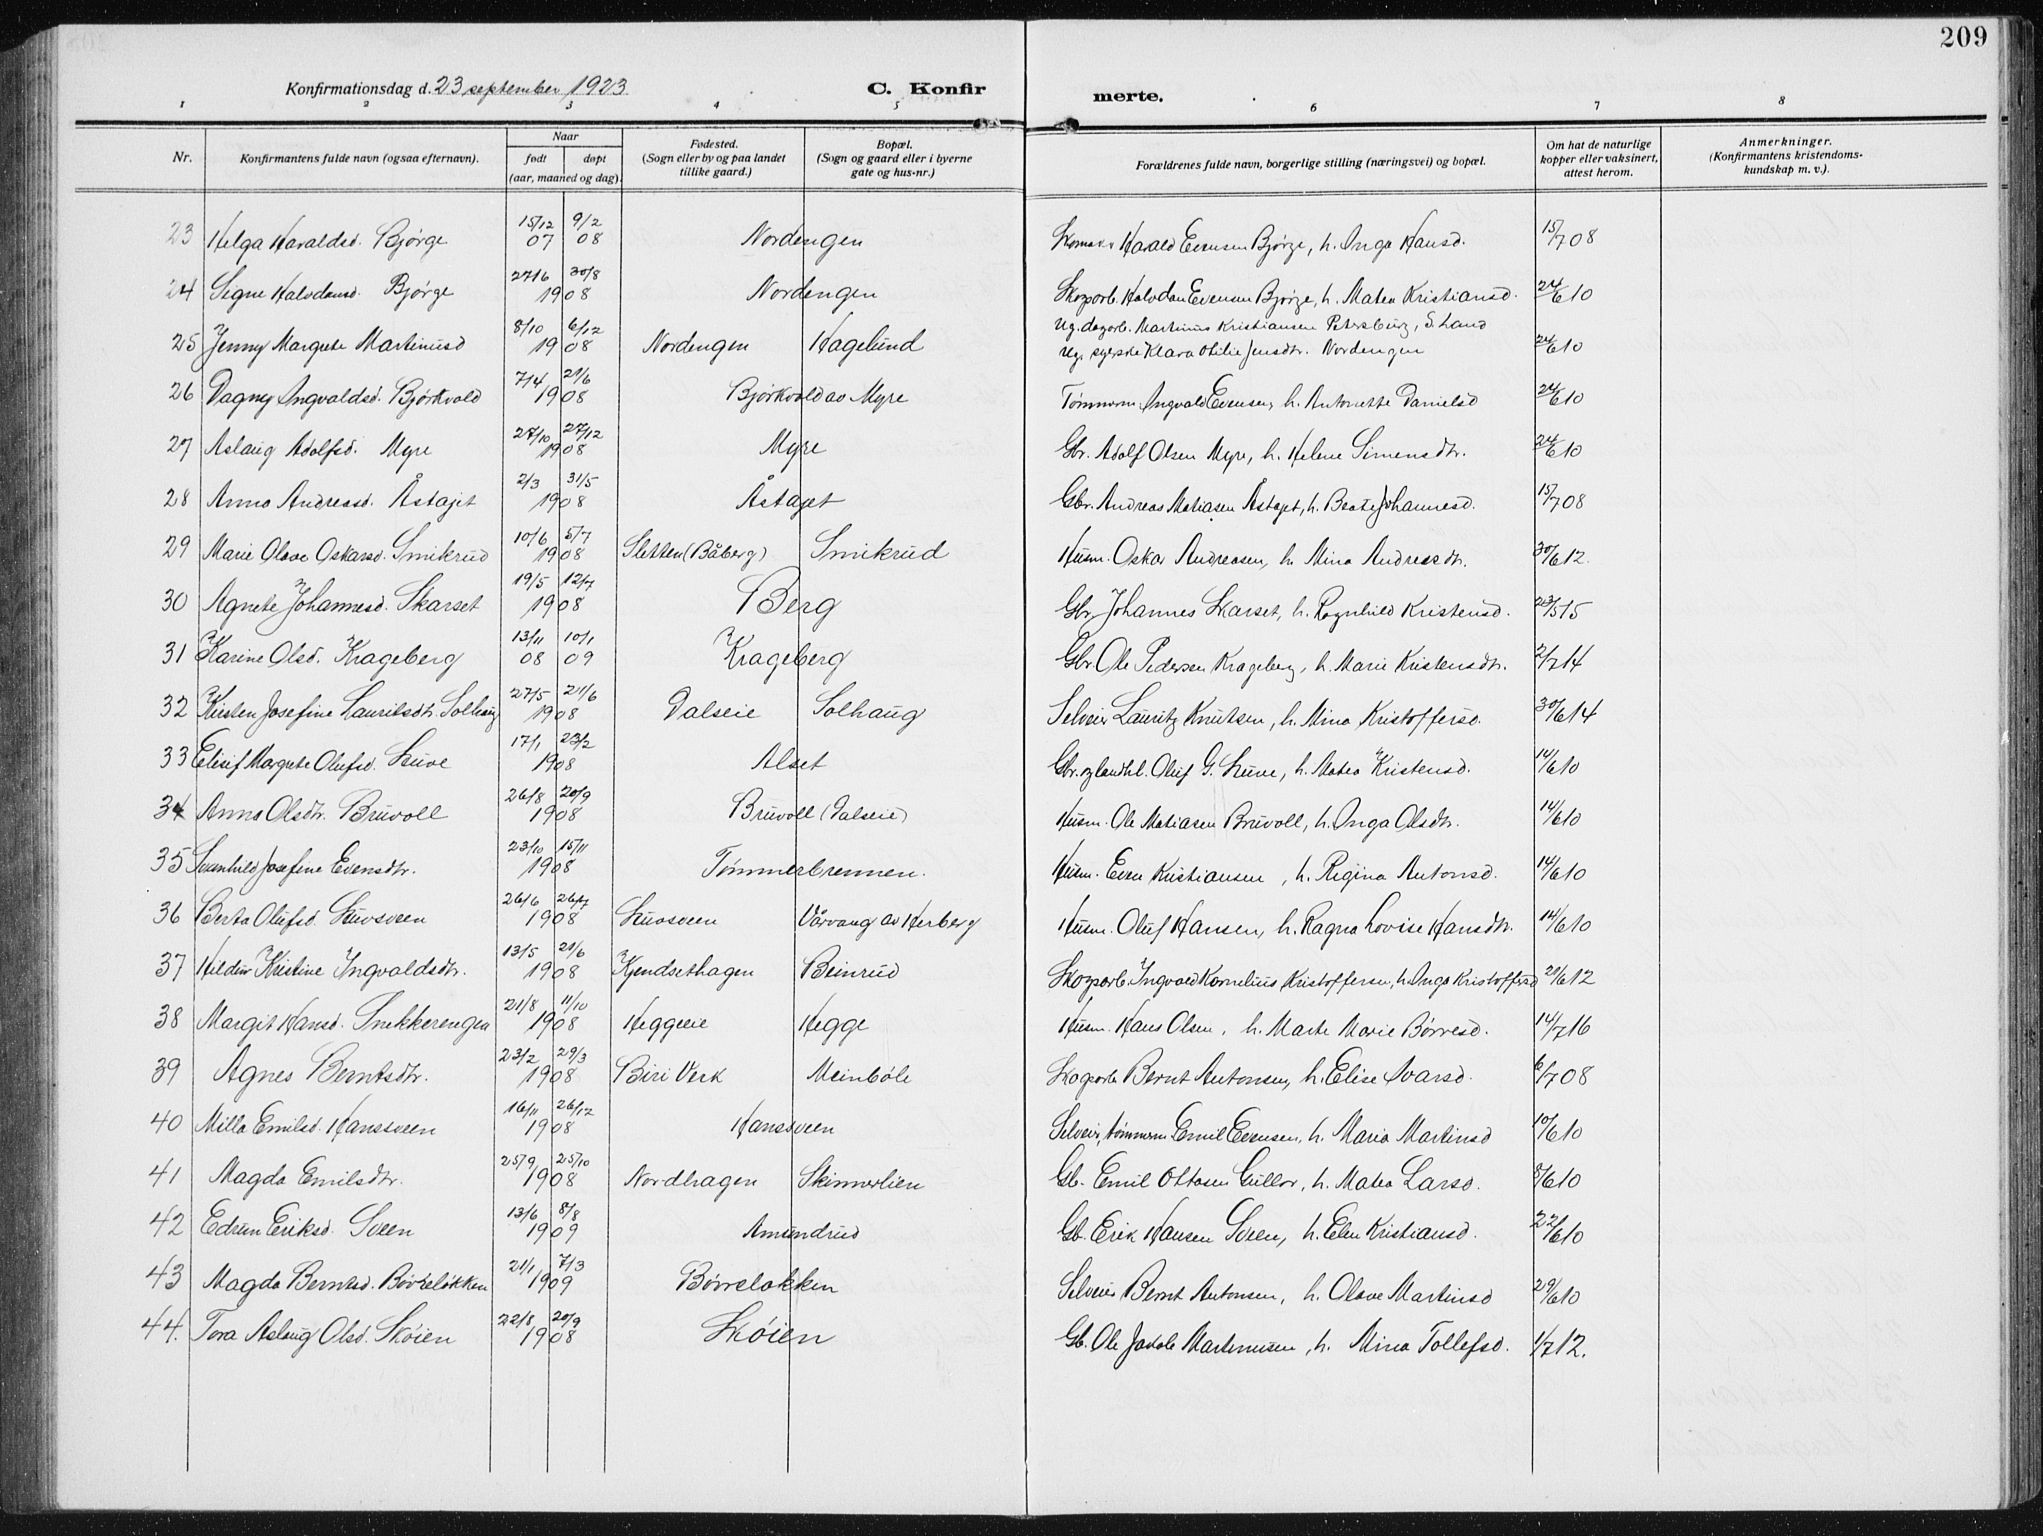 209
Konfirmationsdag d. 23 september 1923.
C. Konfir
merte.
1 2 3 4 5 6 7 8
Nr.
Konfirmantens fulde navn (ogsaa efternavn).
Naar
født døpt
(aar, maaned og dag).
Fødested.
(Sogn eller by og paa landet
tillike gaard.)
Bopæl.
(Sogn og gaard eller i byerne
gate og hus-nr.)
Forældrenes fulde navn, borgerlige stilling (næringsvei) og bopæl.
Om hat de naturlige
kopper eller vaksinert,
attest herom.
Anmerkninger.
(Konfirmantens kristendoms-
kundskap m. v.).
23 Helga Haraldsd. Bjørge 15/12 07 9/2 08 Nordengen Harald Evensen Bjørge, h. Inga Hansd. 15/7 08
24 Signe Halvdansd. Bjørge 27/6 30/8 1908 Nordengen Skogarb. Halvdan Evensen Bjørge, h. Matea Kristiansd. 24/6 10
25 Jenny Margrete Martinusd 8/10 6/12 1908 Nordengen Hagelund Ug. dagarb. Martinus Kristiansen Petersburg, S. Land
Ug. syerske Klara Otilie Jensdtr. Nordengen 24/6 10
26 Dagny Ingvaldsd. Bjørkvold 7/4 21/6 1908 Bjørkvold av Myre Tømmerm. Ingvald Evensen, h. Antonette Danielsd 24/6 10
27 Aslaug Adolfsd. Myre 27/10 27/12 1908 Myre Gbr. Adolf Olsen Myre, h. Helene Simensdtr. 24/6 10
28 Anna Andreasd. Åstajet 2/3 31/5 1908 Åstajet Gbr. Andreas Matiasen Åstajet, h. Beate Johannesd. 15/7 08
29 Marie Olave Oskarsd. Smikrud 10/6 5/7 1908 Sletten (Båberg) Smikrud Husm. Oskar Andreasen, h. Mina Andreasdtr. 30/6 12.
30 Agnete Johannesd. Skarset 19/5 12/7 1908 Berg Gbr. Johannes Skarset, h. Ragnhild Kristensd. 23/5 15
31 Karine Olsd. Krageberg 13/11 08 10/1 09 Krageberg Gbr. Ole Pedersen Krageberg, h. Marie Kristensdtr. 2/7 14
32 Kirsten Josefine Lauritsdtr. Solhaug 27/5 21/6 1908 Dalseie Solhaug Selveier Lauritz Knutsen, h. Mina Kristoffersd. 30/6 14
33 Elisif Margrete Olufsd. Skuve 17/1 23/2 1908 Alset Gbr. og landhl. Oluf G. Skuve, h. Matea Kristensd. 14/6 10
34 Anna Olsdtr. Bruvoll 26/8 20/9 1908 Bruvoll (Dalseie) Husm. Ole Matiasen Bruvoll, h. Inga Olsdtr. 14/6 10
35 Svanhild Josefine Evensdtr. 23/10 15/11 1908 Tømmerbrennen. Husm. Even Kristiansen, h. Regina Antonsd. 14/6 10
36 Berta Olufsd. Skuvsveen 26/6 26/7 1908 Skuvsveen Vårvang av Herberg Husm. Oluf Hansen, h. Ragna Lovise Hansdtr. 14/6 10
37 Hildur Kristine Ingvaldsdtr. 13/5 21/6 1908 Kjendsethagen Beinrud Skogarb. Ingvald Kornelius Kristoffersen, h. Inga Kristoffersd 21/6 12
38 Margit Hansd. Snekkerengen 21/8 11/10 1908 Heggeeie Hegge Husm. Hans Olsen, h. Marte Marie Børresd. 14/7 16
39 Agnes Berntsdtr. 23/2 29/3 1908 Biri Verk Meinbøle Skogarb Bernt Antonsen, h. Elise Ivarsd. 6/7 08
40 Milla Emilsd. Hanssveen 16/11 26/12 1908 Hanssveen Selveier, tømmerm Emil Evensen, h. Maria Martinsd 10/6 10
41 Magda Emilsdtr. 25/9 25/10 1908 Nordhagen Skinnerlien Gb. Emil Ottosen Gullor, h. Matea Larsd. 8/6 10
42 Edrun Eriksd. Sveen 13/6 8/8 1909 Amundrud Gb. Erik Hansen Sveen, h. Elen Kristiansd. 22/6 10
43 Magda Berntsd. Børreløkken 21/1 7/3 1909 Børreløkken Selveier Bernt Antonsen, h. Olave Martinsd 29/6 10
44. Tora Aslaug Olsd. Skøien 22/8 20/9 1908 Skøien Gb. Ole Jakob Martinusen, h. Mina Tollefsd. 1/7 12.